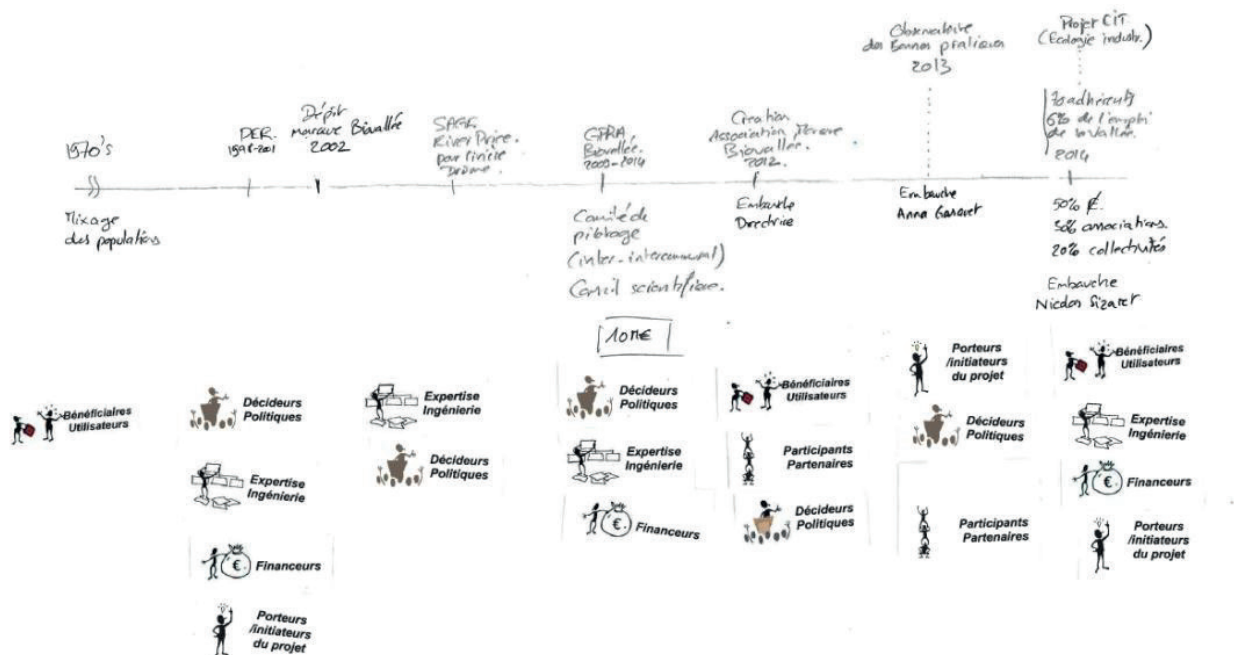 1970's
Mixage
des populations
DER.
Dépôt
marque Biovallée
2002
SAGE
River Prize.
pour rivière
Drôme.
Biovallée.
2009-2014
Comité de
pilotage
(inter-intercommunal)
Conseil scientifique.
10M€
Creation
Association
Biovallée.
2012.
Embauche
Directrice
Observatoire
des Bonnes pratiques
2013
Embauche
Anna
Projet CIT
(Ecologie industr.)
70 adhérents
6% de l'emploi
de la vallée.
2014
50%
30% associations.
20% collectivités
Embauche
Nicolas Sizaret
Bénéficiaires
Utilisateurs
Décideurs
Politiques
Expertise
Ingénierie
Financeurs
Porteurs
/initiateurs
du projet
Expertise
Ingénierie
Décideurs
Politiques
Décideurs
Politiques
Expertise
Ingénierie
€
Financeurs
Bénéficiaires
Utilisateurs
Participants
Partenaires
Décideurs
Politiques
Porteurs
/initiateurs
du projet
Décideurs
Politiques
Participants
Partenaires
Bénéficiaires
Utilisateurs
Expertise
Ingénierie
€
Financeurs
Porteurs
/initiateurs
du projet